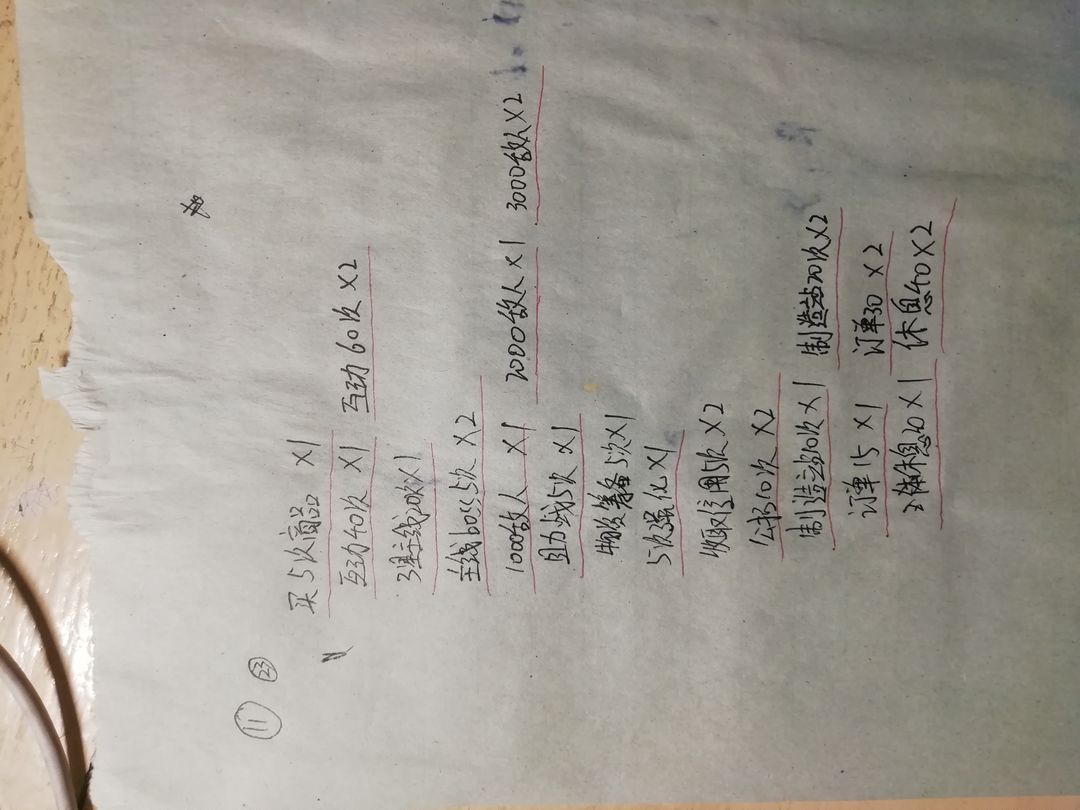 ⑪ ㉓
买5次商品 ×1
互动40次 ×1 互动60次 ×2
3星主线20次×1
主线boss5次 ×2
1000敌人 ×1 2000敌人 ×1 3000敌人×2
助力战5次 ×1
物资筹备5次×1
5次强化×1
收取信用5次 ×2
公招10次 ×2
制造站30次×1 制造站70次×2
订单15 ×1 订单30 ×2
休息20×1 休息40×2